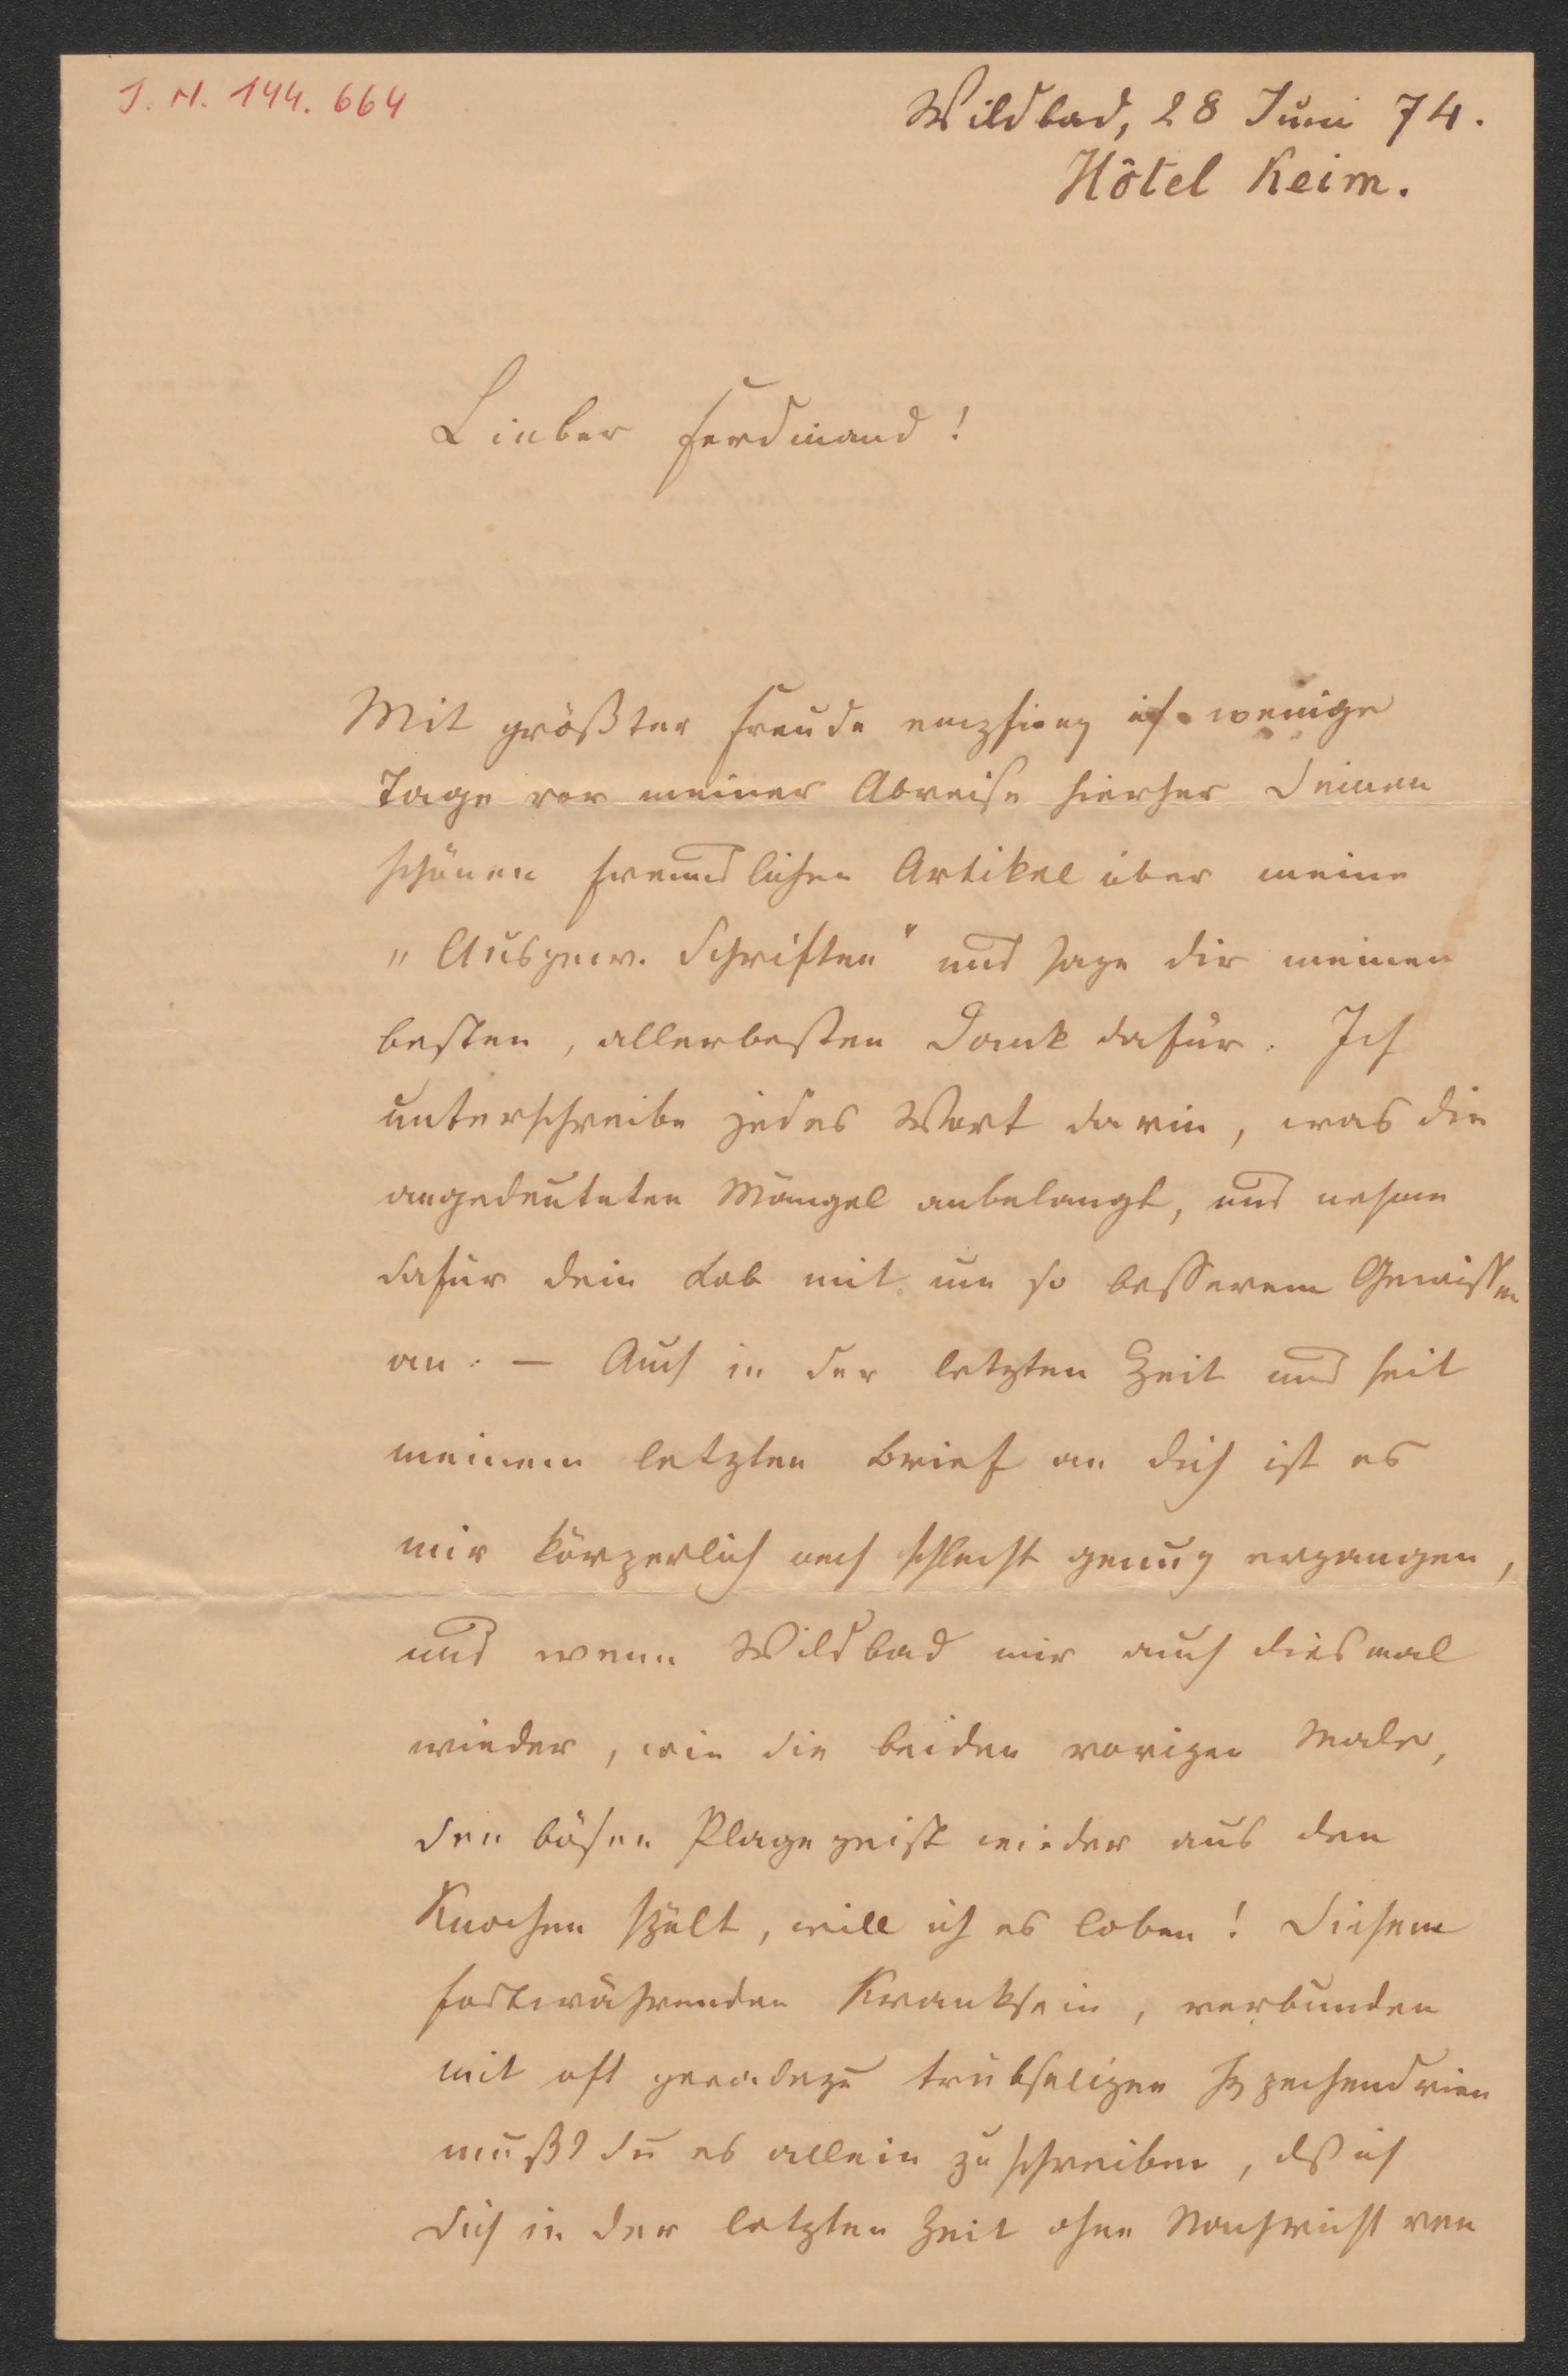 J. N. 144.664
Wildbad, 28 Juni 74.
Hôtel Keim.
Lieber Ferdinand!
Mit größter Freude empfieng ich wenige
Tage vor meiner Abreise hierher Deinen
schönen freundlichen Artikel über meine
„Ausgew. Schriften" und sage dir meinen
besten, allerbesten Dank dafür. Ich
unterschreibe jedes Wort darin, was die
angedeuteten Mängel anbelangt, und nehme
dafür dein Lob mit um so besserem Gewissen
an. — Auch in der letzten Zeit und seit
meinem letzten Brief an dich ist es
mir körperlich noch schlecht genug ergangen,
und wenn Wildbad mir auch diesmal
wieder, wie die beiden vorigen Male,
den bösen Plagegeist wieder aus den
Knochen spült, will ich es loben! Diesem
fortwährenden Kranksein, verbunden
mit oft geradezu trübseligen Hypochondrien
mußt du es allein zuschreiben, dß ich
dich in der letzten Zeit ohne Nachricht von